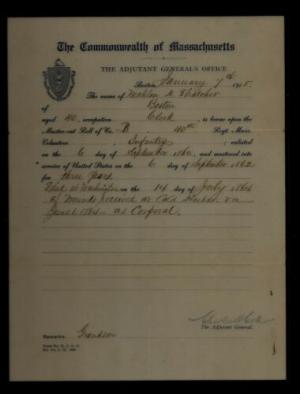 The Commonwealth of Massachusetts
THE ADJUTANT GENERAL'S OFFICE
Boston, January 7th
The name of
of Boston
aged occupation Clerk, is borne upon the
Muster-and Roll of Co. B. Regt. Mass.
Volunteer Infantry, enlisted
on the 6 day of September 1862, and mustered into
service of United States on the 6 of September 1862
for three years
Died at Washington on the 14 day of July 1864
of wounds received at Cold Harbor Va
June 1864 as Corporal.
The Adjutant General.
Remarks: Grandson